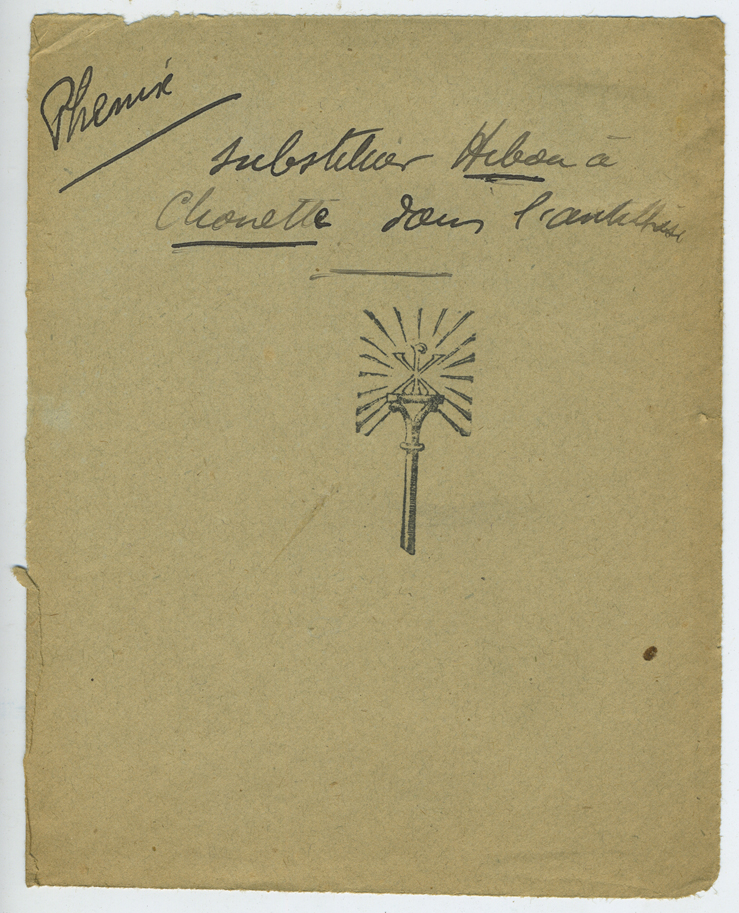 Phenix
substituer Hibou à
Chouette dans l'antithèse